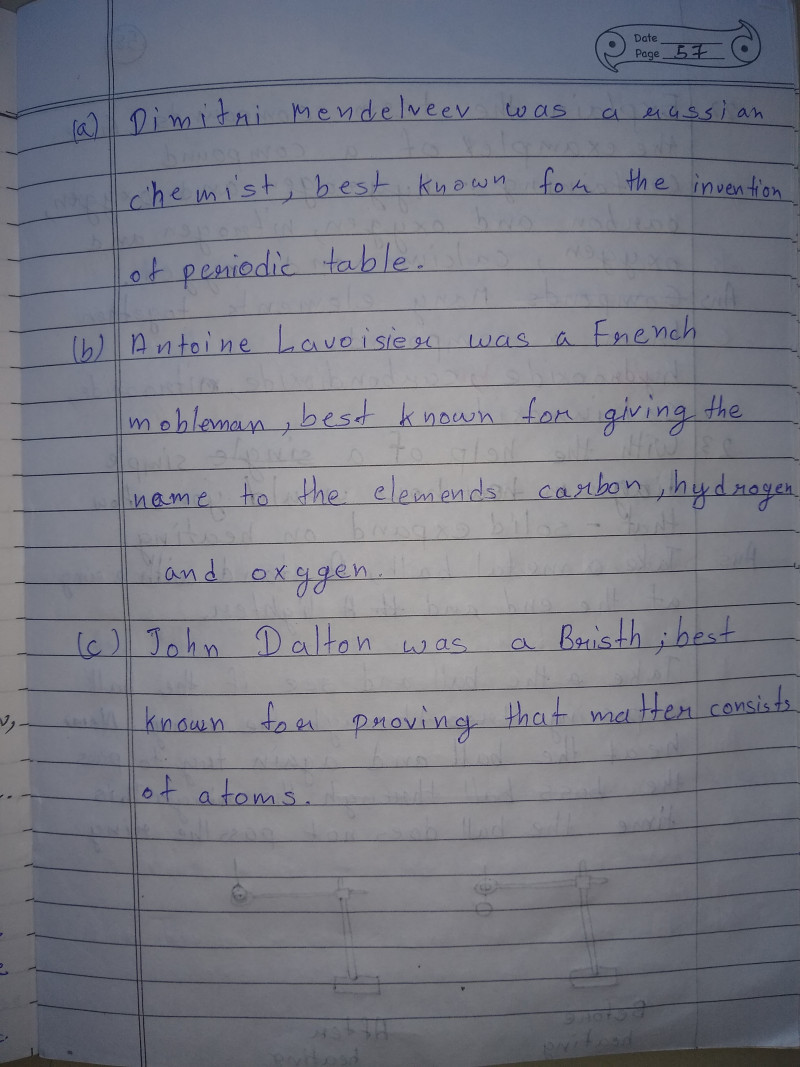 Date
Page 57
(a) Dimitri Mendelveev was a russian
chemist, best known for the invention
of periodic table.
(b) Antoine Lavoisier was a French
mobleman, best known for giving the
name to the elemends carbon, hydrogen
and oxygen.
(c) John Dalton was a Bristh, best
known for proving that matter consists
of atoms.